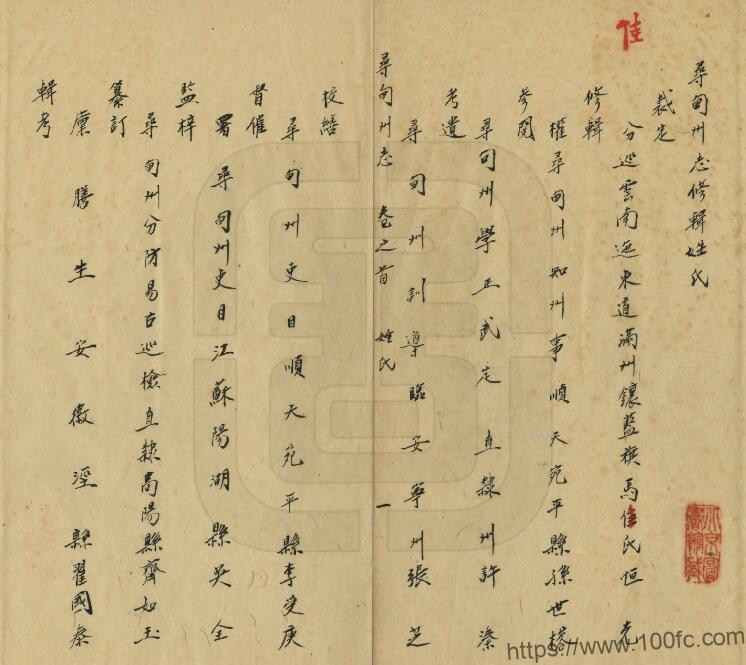 尋甸州志修輯姓氏
裁定
分巡雲南迤東道滿州鑲藍旗馬佳氏恒光
佳
修輯
權尋甸州知州事順天宛平縣孫世榕
參閱
尋甸州學正武定直隸州許濚
考遺
尋甸州訓導臨安寧州張芝
尋甸州志 卷之首 姓氏 一
校繕
尋甸州吏目順天宛平縣李受庚
督催
署尋甸州吏目江蘇陽湖縣吳全
監梓
尋甸州分防易古巡檢直隸高陽縣齊如玉
纂訂
廩膳生安徽涇縣翟國泰
輯考
https://www.100fc.com